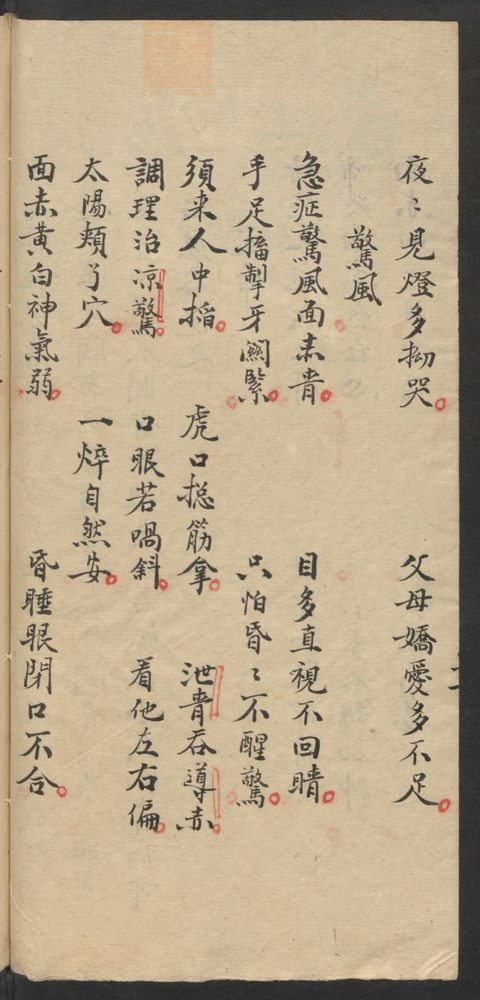 夜〻見燈多拗哭 父母嬌愛多不足
驚風
急症驚風面赤青 目多直視不回睛
手足搐掣牙關緊 只怕昏〻不醒驚
須來人中掐 虎口捴筋拿 泄青吞導赤
調理治涼驚 口眼若喎斜 看他左右偏
太陽頰了穴 一焠自然安
面赤黃白神氣弱 昏睡眼閉口不合